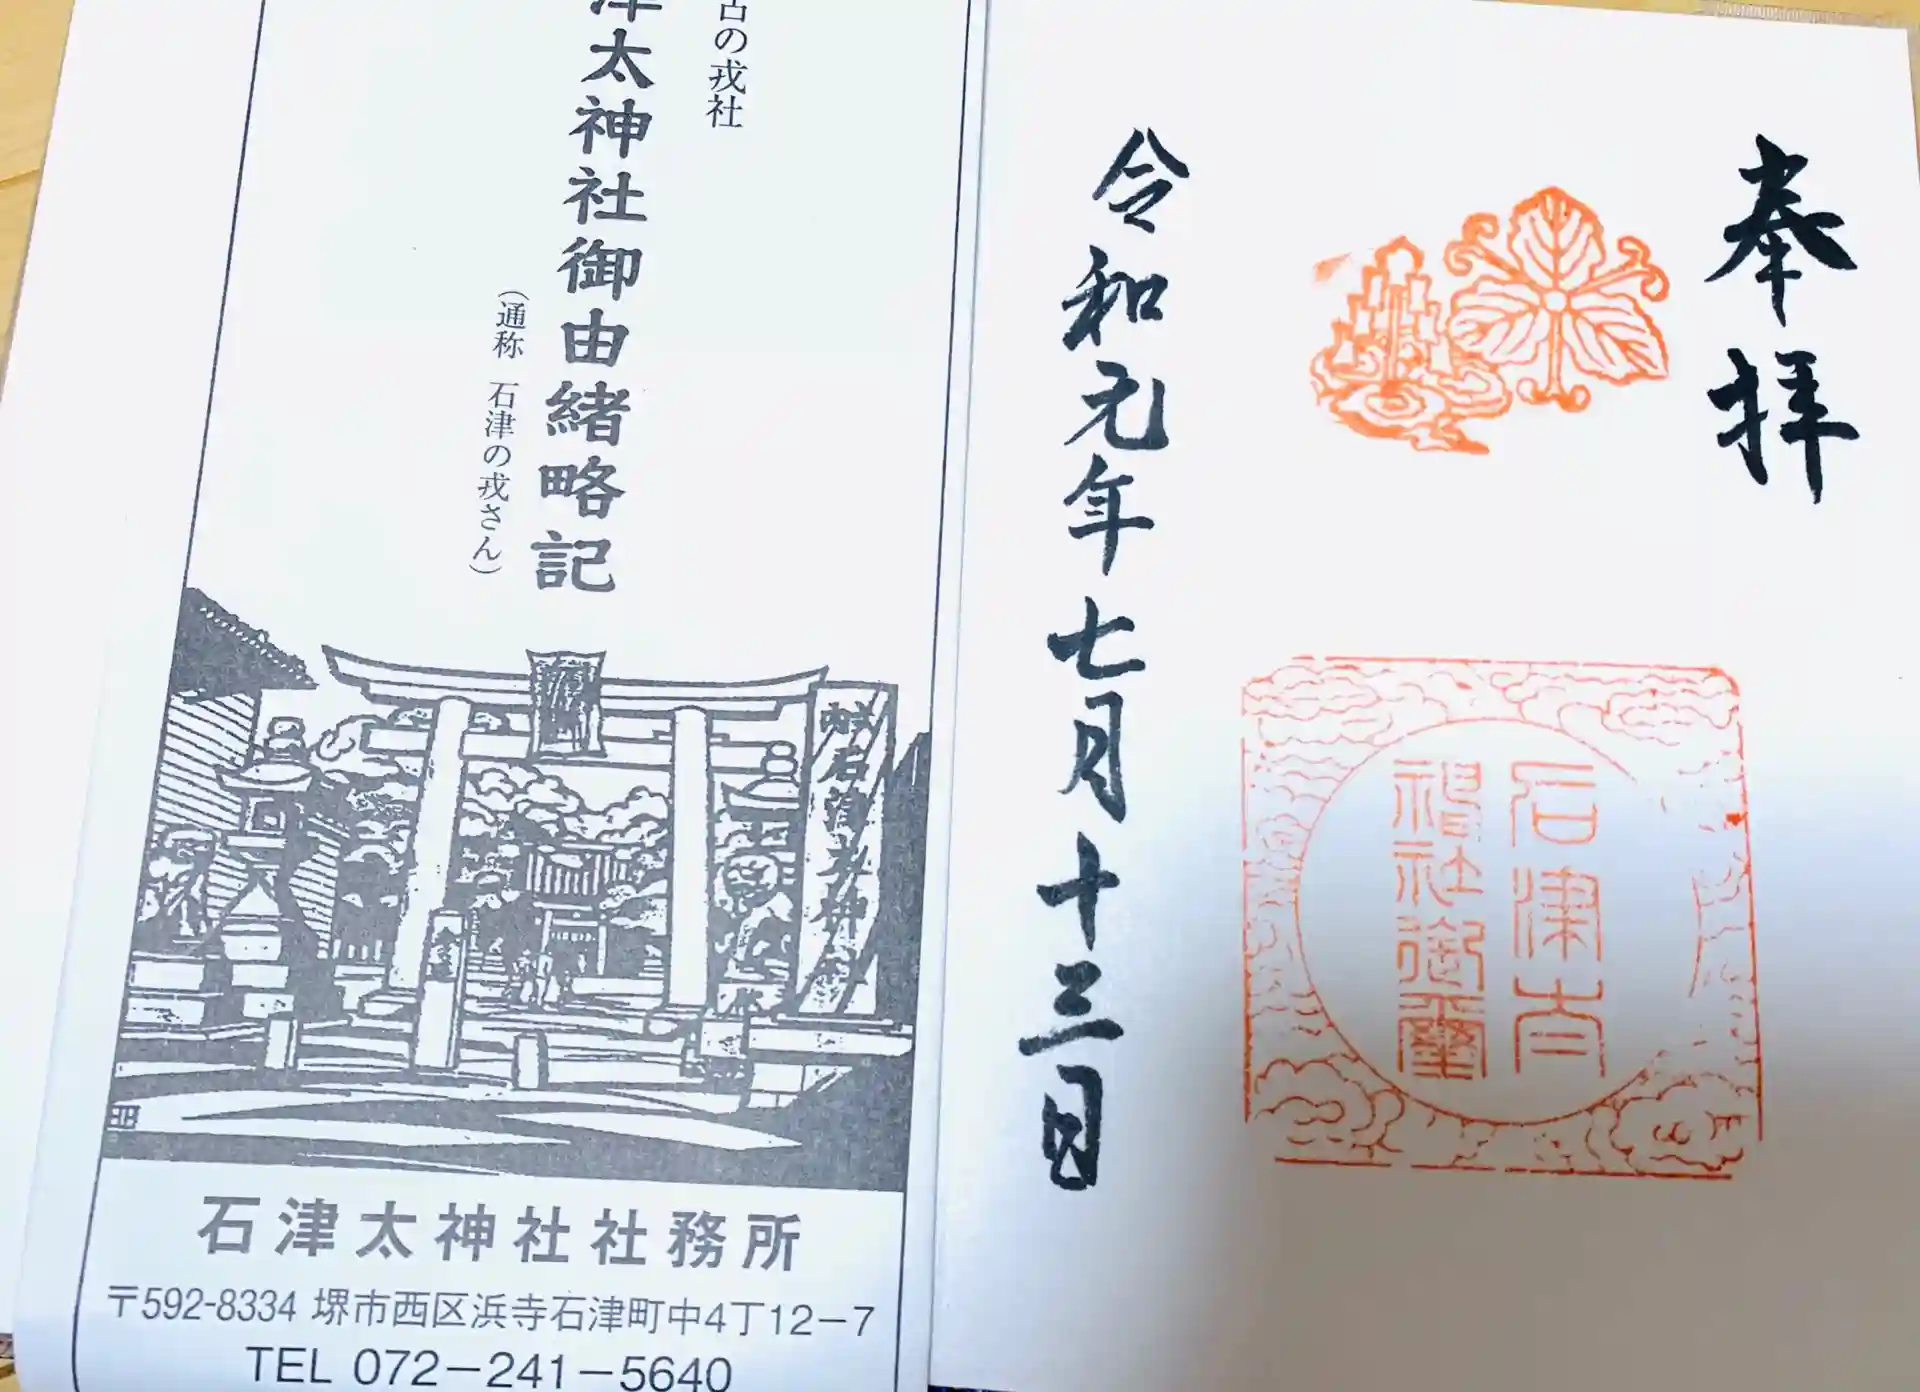 奉拝
石津太
神社御璽
令和元年七月十三日
古の戎社
津太神社御由緒略記
（通称 石津の戎さん）
石津太神社
石津太神社社務所
〒592-8334 堺市西区浜寺石津町中4丁12−7
TEL 072−241−5640